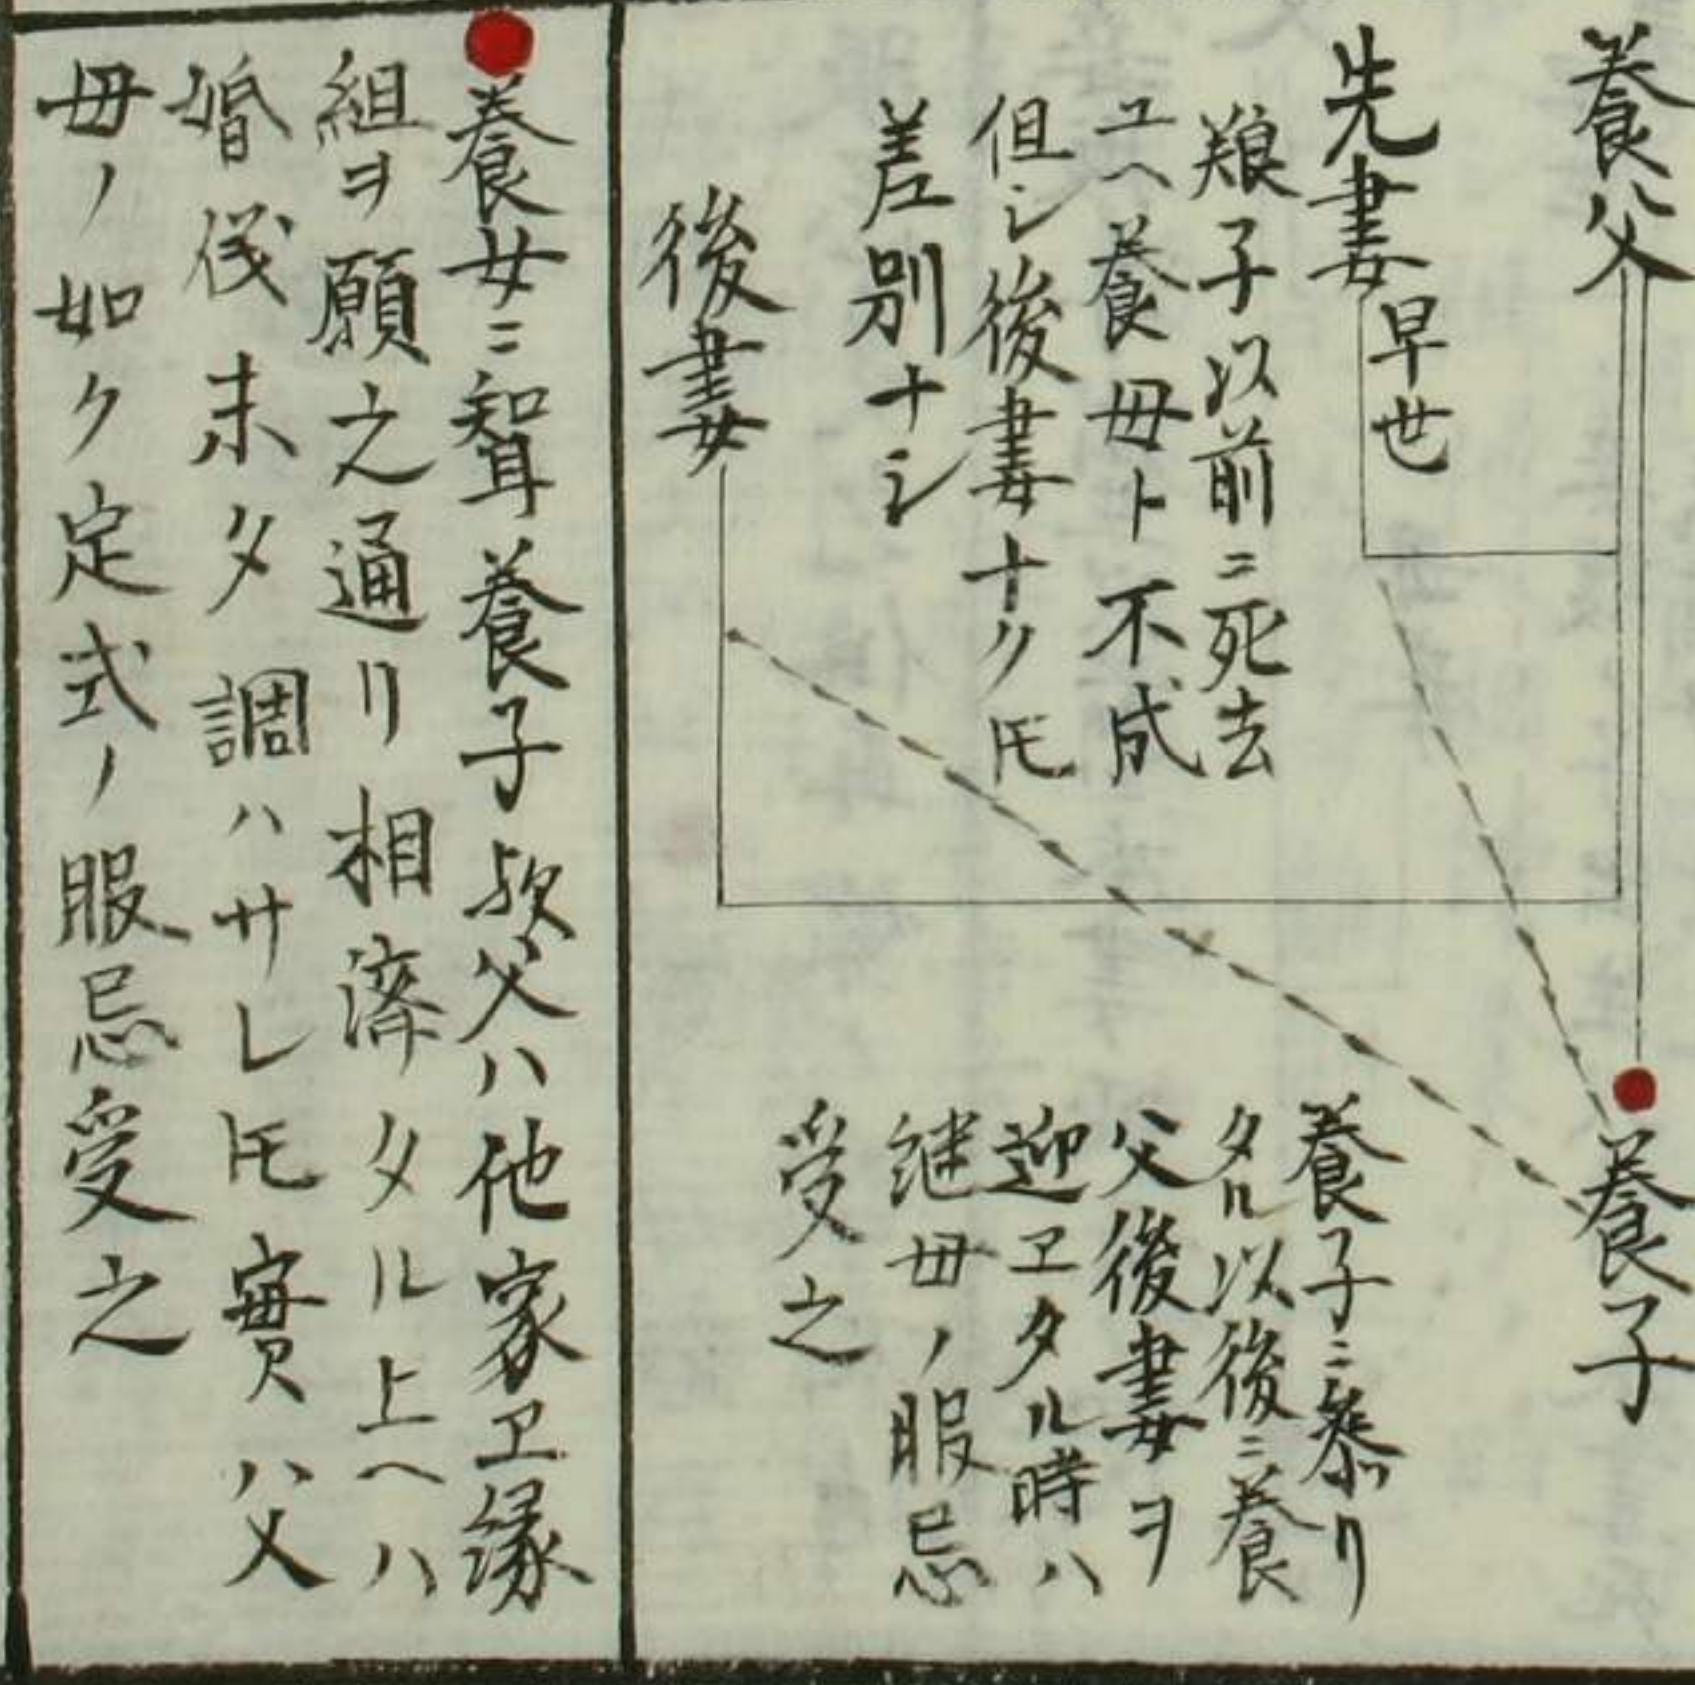 養父
先妻 早世
養子以前ニ死去
ユヘ養母ト不成
但シ後妻ナク𪜈
差別ナシ
後妻
養子
養子ニ参リ
タル以後ニ養
父後妻ヲ
迎ヱタル時ハ
継母ノ服忌
受之
養女ニ聟養子或父ハ他家ヱ縁
組ヲ願之通リ相済タル上ヘハ
婚儀未タ調ハサレ𪜈實ハ父
母ノ如ク定式ノ服忌受之